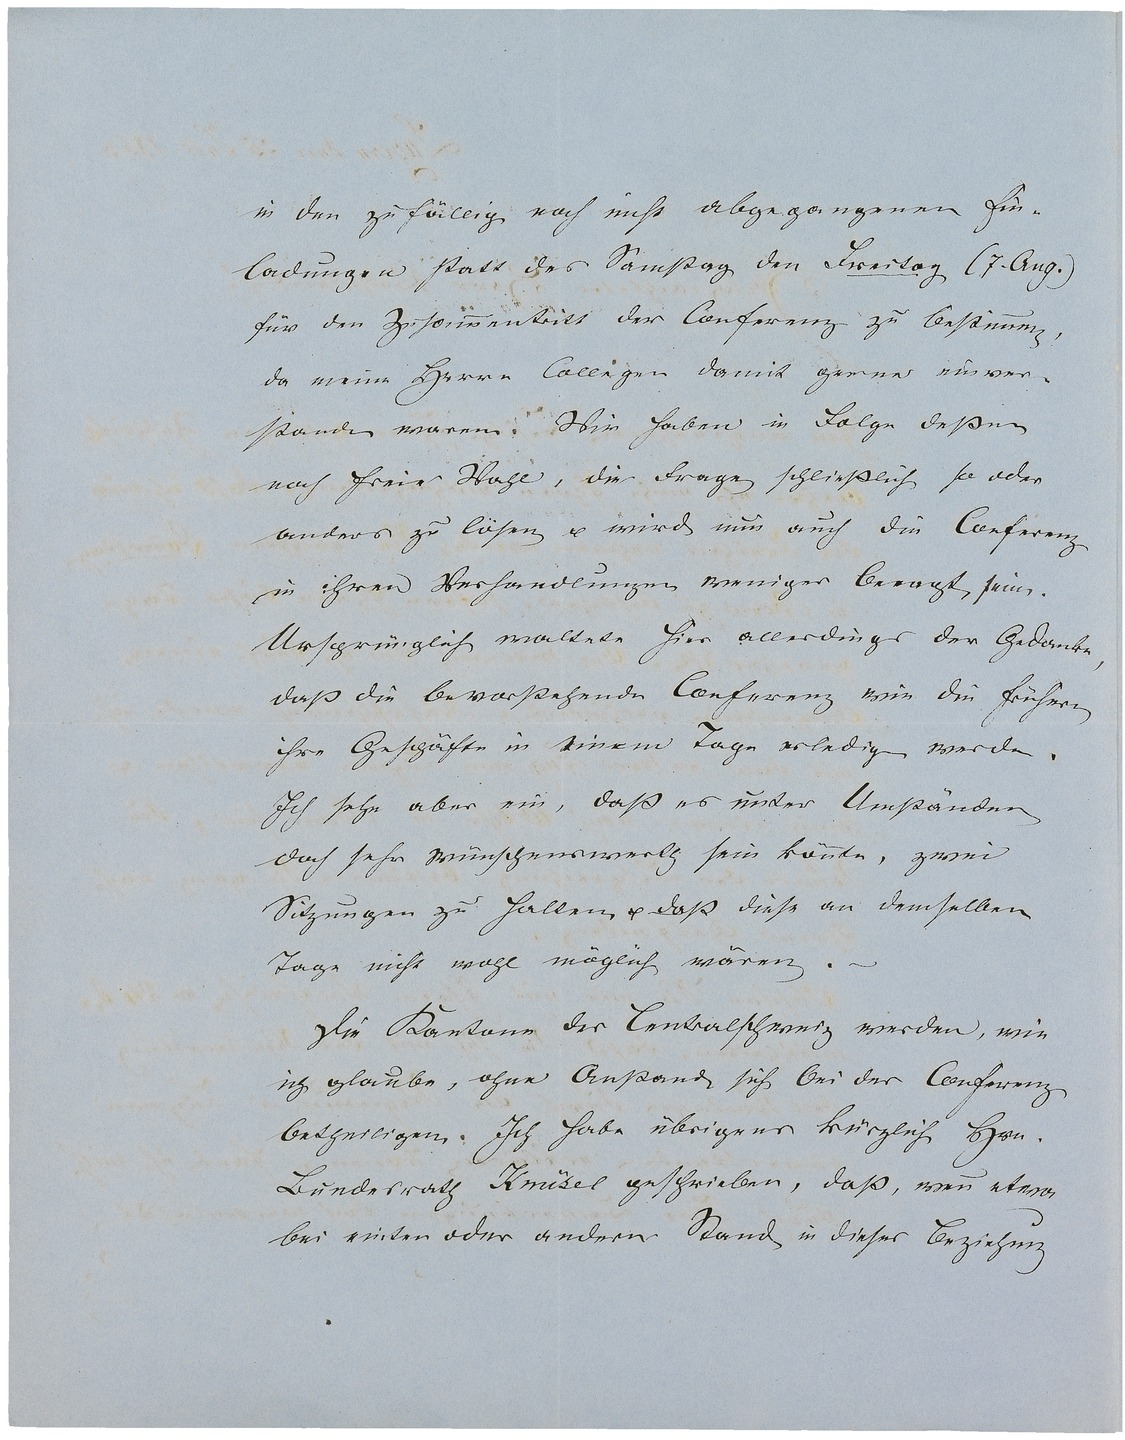 in den zufällig noch nicht abgegangenen Ein-
ladungen statt des Samstag den Freitag (7. Aug.)
für den Zusam̅entritt der Conferenz zu bestim̅en,
da meine Herren Collegen damit gerne einver-
standen waren. Wir haben in Folge deßen
noch freie Wahl, die Frage schließlich so oder
anders zu lösen & wird nun auch die Conferenz
in ihren Verhandlungen weniger beengt sein.
Ursprünglich waltete hier allerdings der Gedanke,
daß die bevorstehende Conferenz wie die frühern
ihre Geschäfte in einem Tage erledigen werde.
Ich sehe aber ein, daß es unter Umständen
doch sehr wünschenswerth sein kön̅te, zwei
Sitzungen zu halten & daß diese an demselben
Tage nicht wohl möglich wären. –
Die Kantone der Centralschweiz werden, wie
ich glaube, ohne Anstand sich bei der Conferenz
betheiligen. Ich habe übrigens kürzlich Hrn.
Bundesrath Knüsel geschrieben, daß, wen̅ etwa
bei einten oder andern Stand in dieser Beziehung